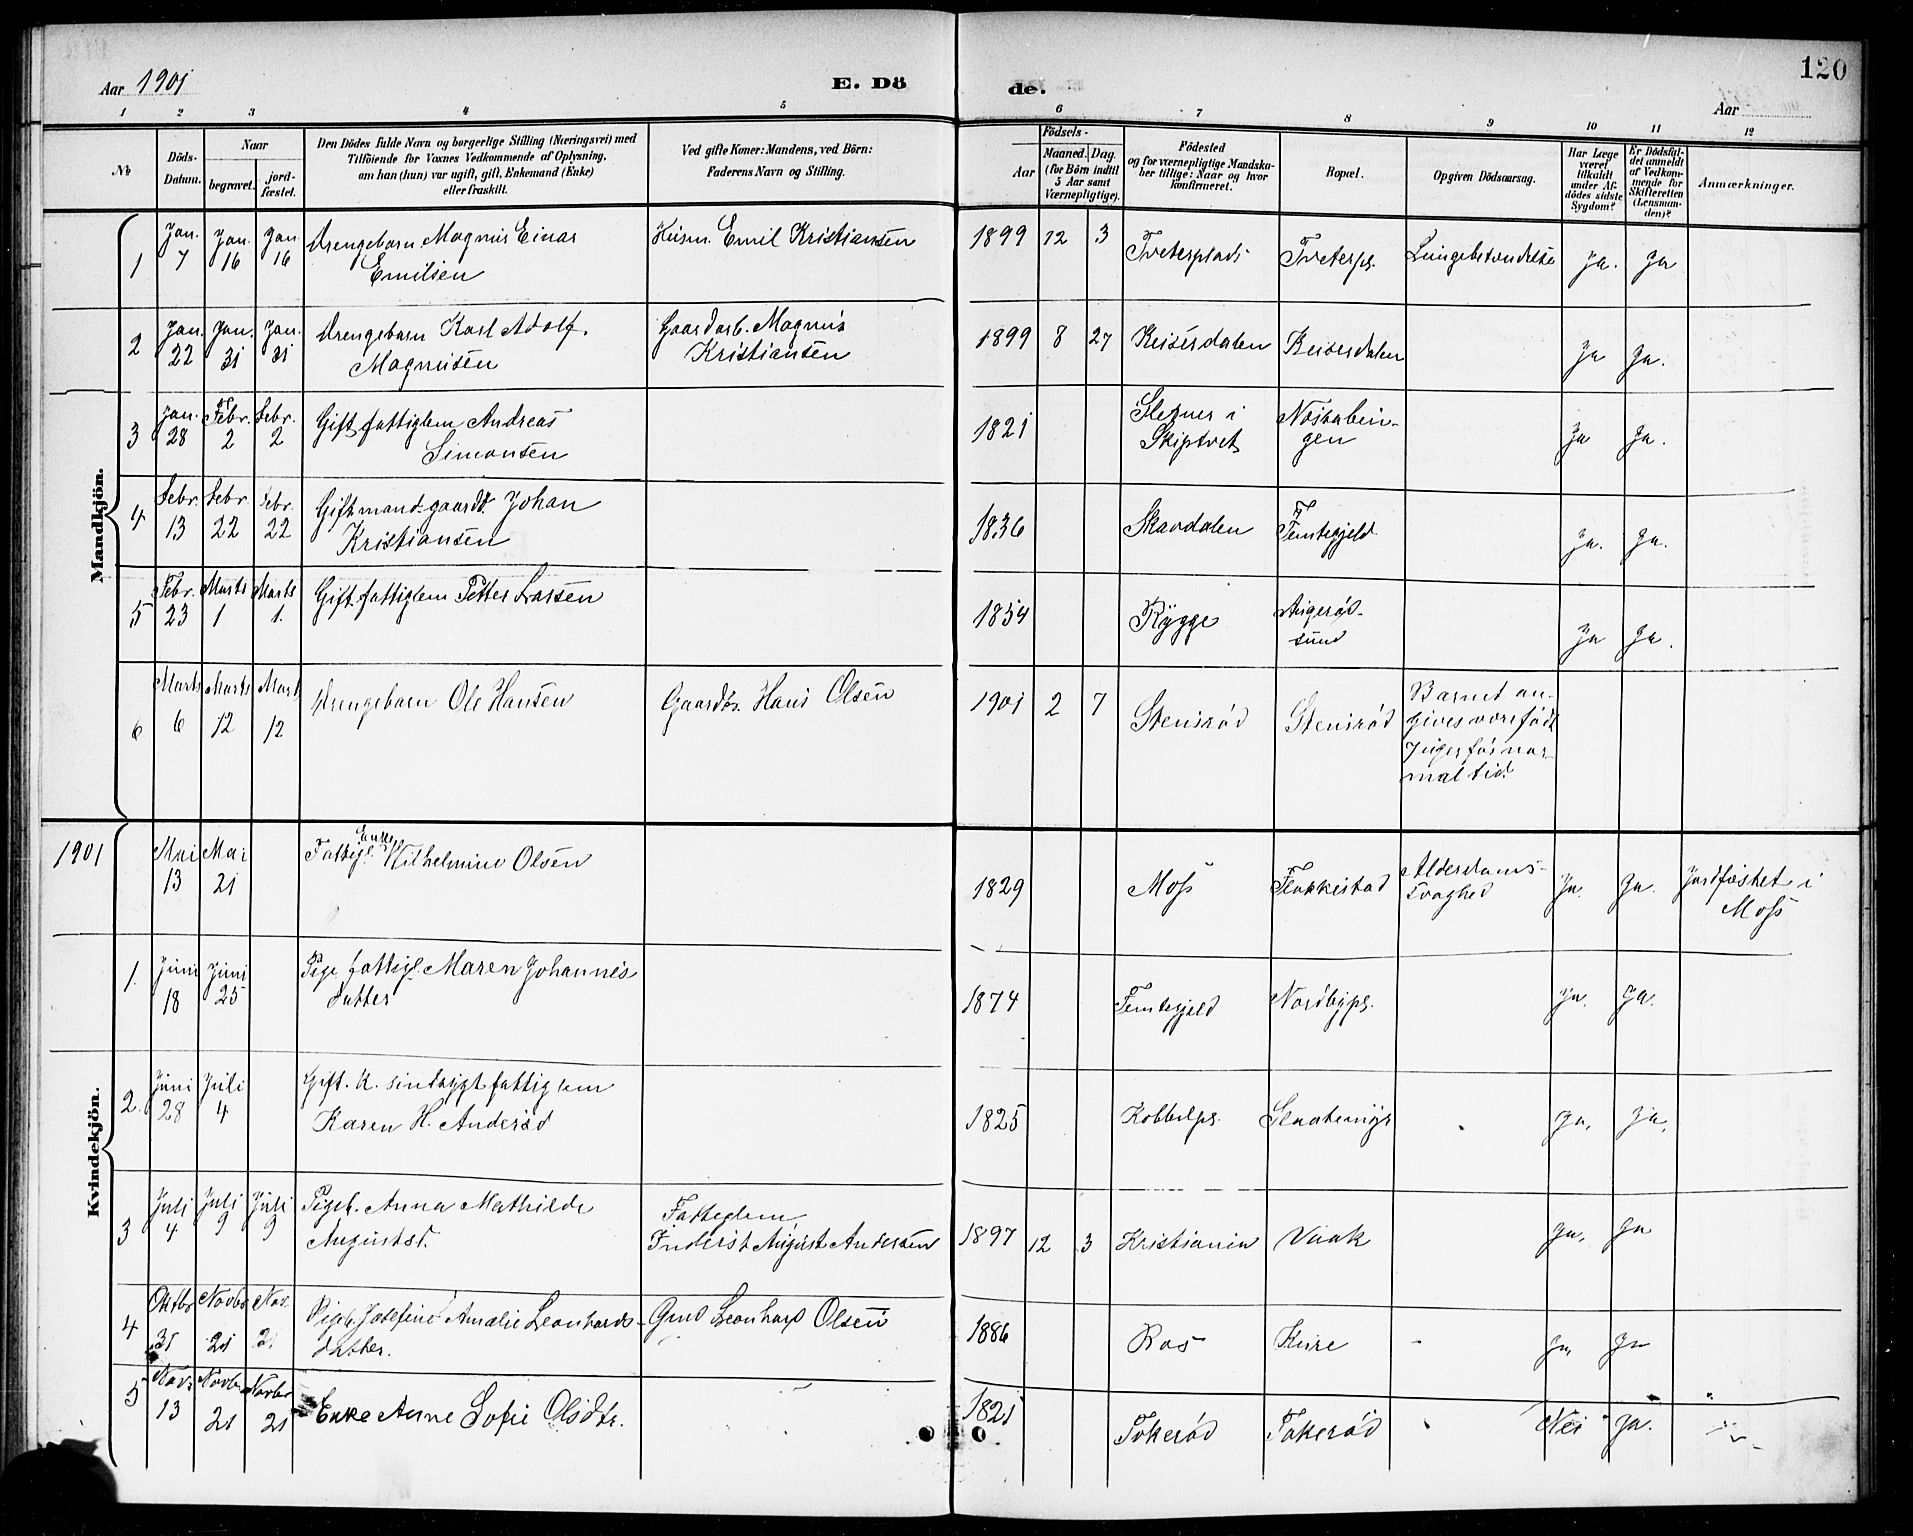 120
Aar 1901
E. Dö
de.
Aar
1 2 3 4 5 6 7 8 9 10 11 12
No
Döds-Datum.
Naar
begravet.
jord-fæstet.
Den Dödes fulde Navn og borgerlige Stilling (Næringsvei) med
Tilföiende for Voxnes Vedkommende af Oplysning,
om han (hun) var ugift, gift, Enkemand (Enke)
eller fraskilt.
Ved gifte Koner: Mandens, ved Börn:
Faderens Navn og Stilling.
Födsels-
Aar
Maaned. Dag.
(for Börn indtil
5 Aar samt
Værnepligtige).
Födested
og for værnepligtige Mandska-
ber tillige: Naar og hvor
konfirmeret.
Bopæl.
Opgiven Dödsaarsag.
Har Læge
været
tilkaldt
under Af-
dödes sidste
Sygdom?
Er Dödsfal-
det anmeldt
af Vedkom-
mende for
Skifteretten
(Lensman-
den)?
Anmærkninger.
Mandkjön.
1 Jan. 7 Jan. 16 Jan 16 Drengebarn Magnus Einar
Emilsen
Husm. Emil Kristiansen
1899 12 3 Tveterplads Tveterps. Lungebetændelse Ja. Ja
2 Jan. 22 Jan. 31 Jan. 31 Drengebarn Karl Adolf
Magnusen
Gaardarb. Magnus
Kristiansen
1899 8 27 Keiserdalen Keiserdalen Ja Ja.
3 Jan. 28 Febr. 2 Febr. 2 Gift fattiglem Andreas
Simonsen
1821 i
Skiptvet
Ja Ja.
4 Febr. 13 Febr. 22 Febr. 22 Gift mand gaardt. Johan
Kristiansen
1836 Skardalen Femtegjeld Ja. Ja.
5 Febr. 23 Marts 1 Marts 1. Gift fattiglem Petter Larsen
1854 Rygge Angerød-
sund
Ja Ja.
6 Marts 6 Marts 12 Marts 12 Drengebarn Ole Hansen
Gaardbr. Hans Olsen
1901 2 7 Stensrød Stensrød Barnet an-
gives være født
før nor-
mal tid
Kvindekjön.
1901 Mai 13 Mai 21 Fattigl. Enke Wilhelmine Olsen
1829 Moss Flakkestad Alderdoms-
svaghed
Ja. Ja. Jordfæstet i
Moss
1. Juni 18 Juni 25 Pige fattigl. Maren Johannes
datter
1874 Femtegjeld Nordbyps. Ja. Ja.
2. Juni 28 Juli 4 Gift. K. sindsygt fattiglem
Karen H. Andersd
1825 Kobbelps. Ja, Ja,
3 Juli 4 Juli 9 Juli 9 Pigeb. Anna Mathilde
Augustsd.
Fattiglem
Inderst August Andersen
1897 12 3 Kristiania Vaak Ja, Ja
4 Oktbr 31 Novbr 21 Nov. 21 Pigeb. Josefine Amalie Leonhards-
datter.
Gmd Leonhard Olsen
1886 Ros Kure - Ja, Ja
5 Nov. 13 Novbr 21 Novbr 21 Enke Anne Sofie Olsdtr.
1821 Tokerød Tokerød Nei Ja.